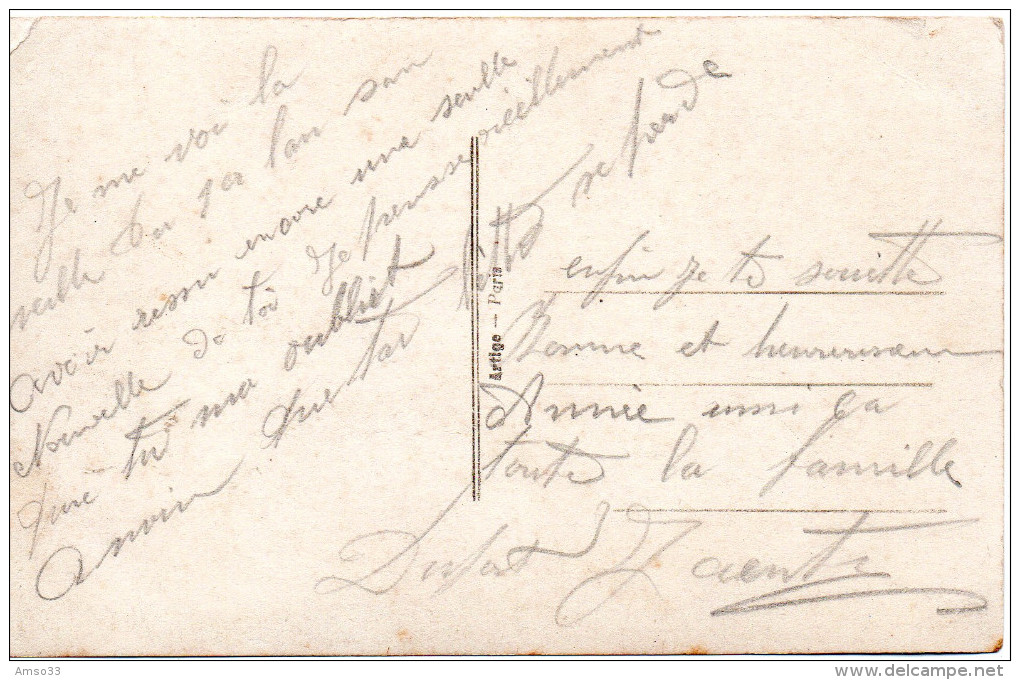 Je me voi la
veille du 1er lan san
avoir ressu encore une seulle
Nouvelle de toi Je pensse vieellement
que tu ma oubliet
a moin que ta lettre se perde
enfin je te souitte
Bonne et heureusse
Année unsi ça
toute la famille
Dufat
Artige — Paris
Amso33
www.delcampe.net